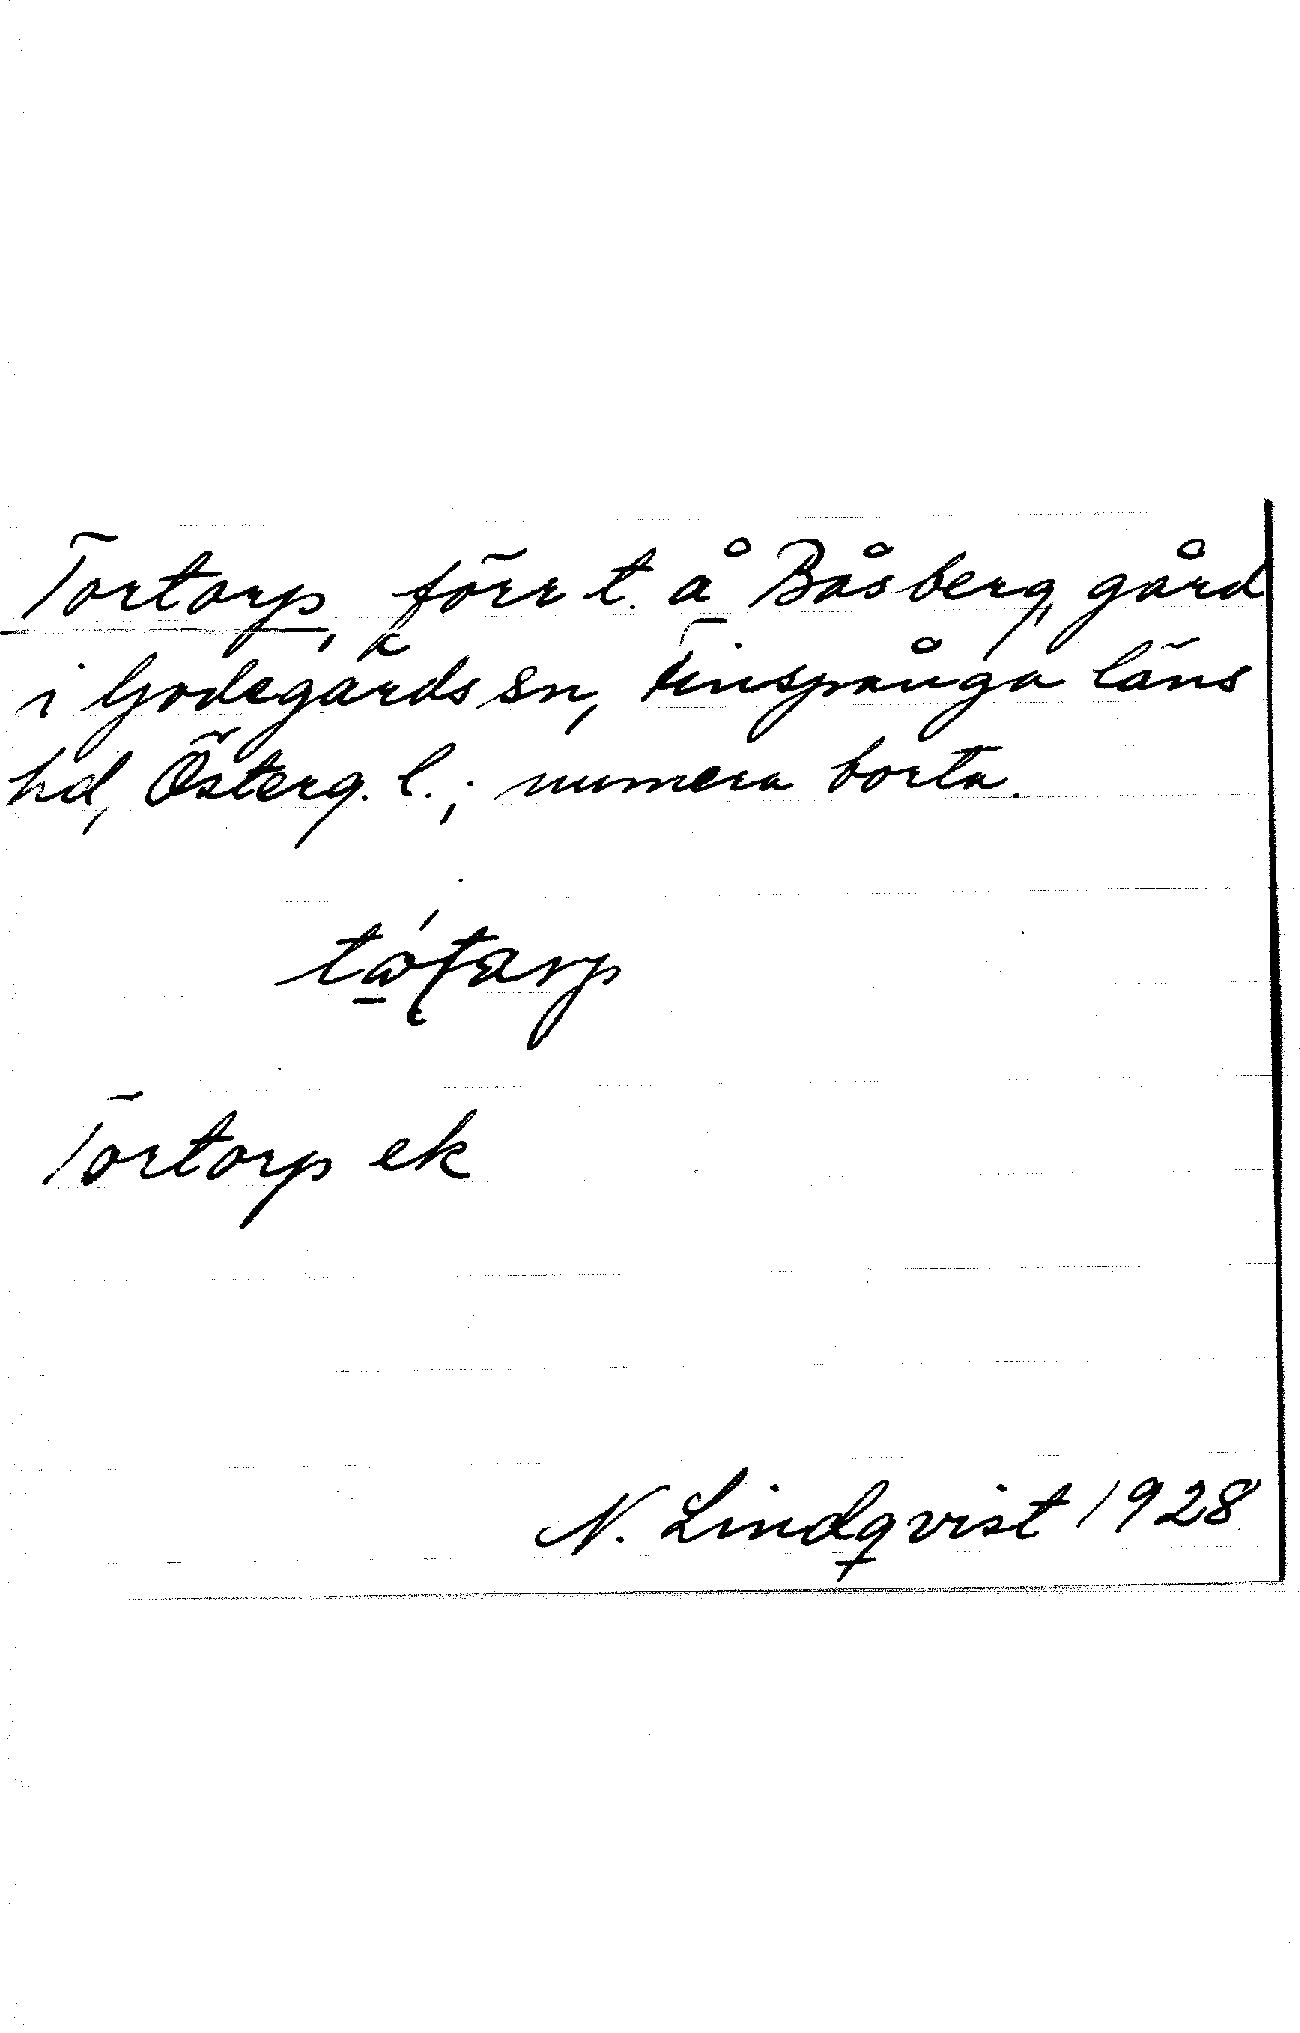 Tortorp, förr t. å Båsberg, gård
i Godegårds sn, Finspånga läns
hd, Österg. l.; numera borta.
Tortorp ek
N. Lindqvist 1928